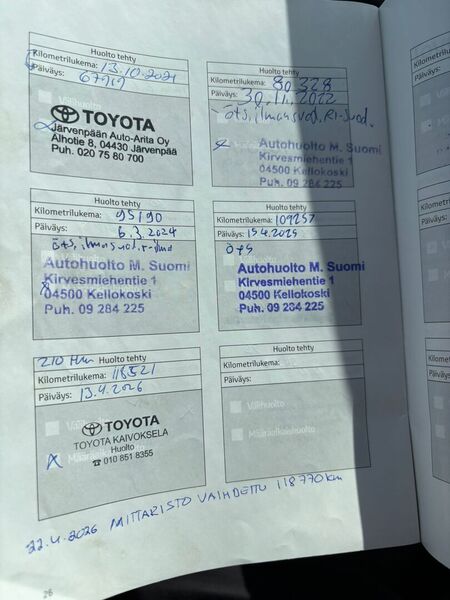 Huolto tehty
Kilometrilukema: 13.10.2021
Päiväys:
TOYOTA
Järvenpään Auto-Arita Oy
Alhotie 8, 04430 Järvenpää
Puh. 020 75 80 700
Huolto tehty
Kilometrilukema: 80 328
Päiväys: 30.11.2022
öts, ilmansuod.
Autohuolto M. Suomi
Kirvesmiehentie 1
04500 Kellokoski
Puh. 09 284 225
Huolto tehty
Kilometrilukema: 95190
Päiväys: 6.3.2024
öts, ilmasuod.
Autohuolto M. Suomi
Kirvesmiehentie 1
04500 Kellokoski
Puh. 09 284 225
Huolto tehty
Kilometrilukema: 109257
Päiväys: 15.4.2025
öts
Autohuolto M. Suomi
Kirvesmiehentie 1
04500 Kellokoski
Puh. 09 284 225
Huolto tehty
Kilometrilukema: 118521
Päiväys: 13.4.2026
TOYOTA
TOYOTA KAIVOKSELA
Huolto
☎ 010 851 8355
Huolto tehty
Kilometrilukema:
Päiväys:
Välihuolto
Määräaikaishuolto
22.4.2026 MITTARISTO VAIHDETTU 118770 km
26